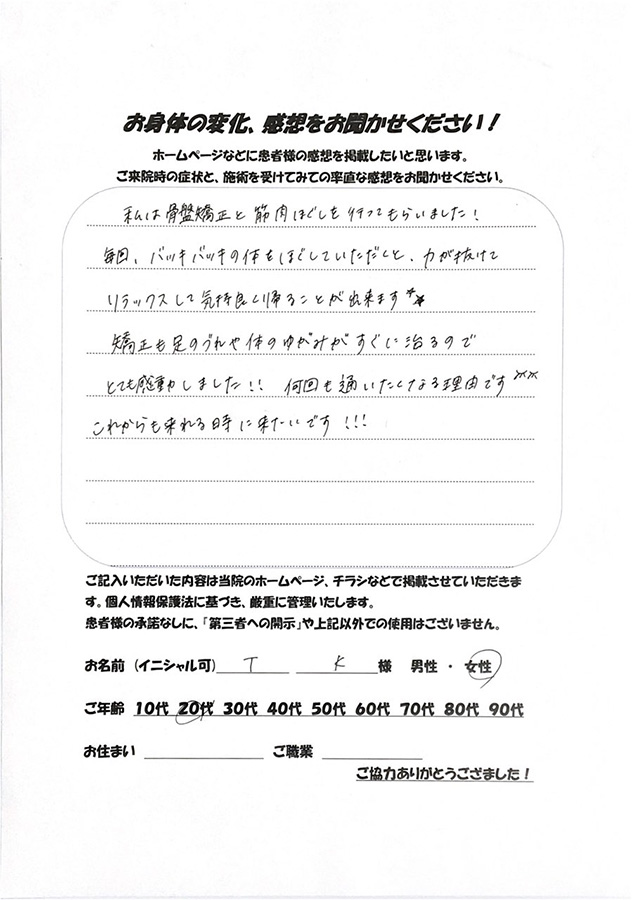 お身体の変化、感想をお聞かせください！
ホームページなどに患者様の感想を掲載したいと思います。
ご来院時の症状と、施術を受けてみての率直な感想をお聞かせください。
私は骨盤矯正と筋肉ほぐしを行ってもらいました！
毎回、バッキバッキの体をほぐしていただくと、力が抜けて
リラックスして気持良く帰ることが出来ます
矯正も足のずれや体のゆがみがすぐに治るので
とても感動しました!! 何回も通いたくなる理由です
これからも来れる時に来たいです!!!
ご記入いただいた内容は当院のホームページ、チラシなどで掲載させていただきま
す。個人情報保護法に基づき、厳重に管理いたします。
患者様の承諾なしに、「第三者への開示」や上記以外での使用はございません。
お名前（イニシャル可） T K 様 男性 ・ 女性
ご年齢 10代 20代 30代 40代 50代 60代 70代 80代 90代
お住まい ご職業
ご協力ありがとうござました！